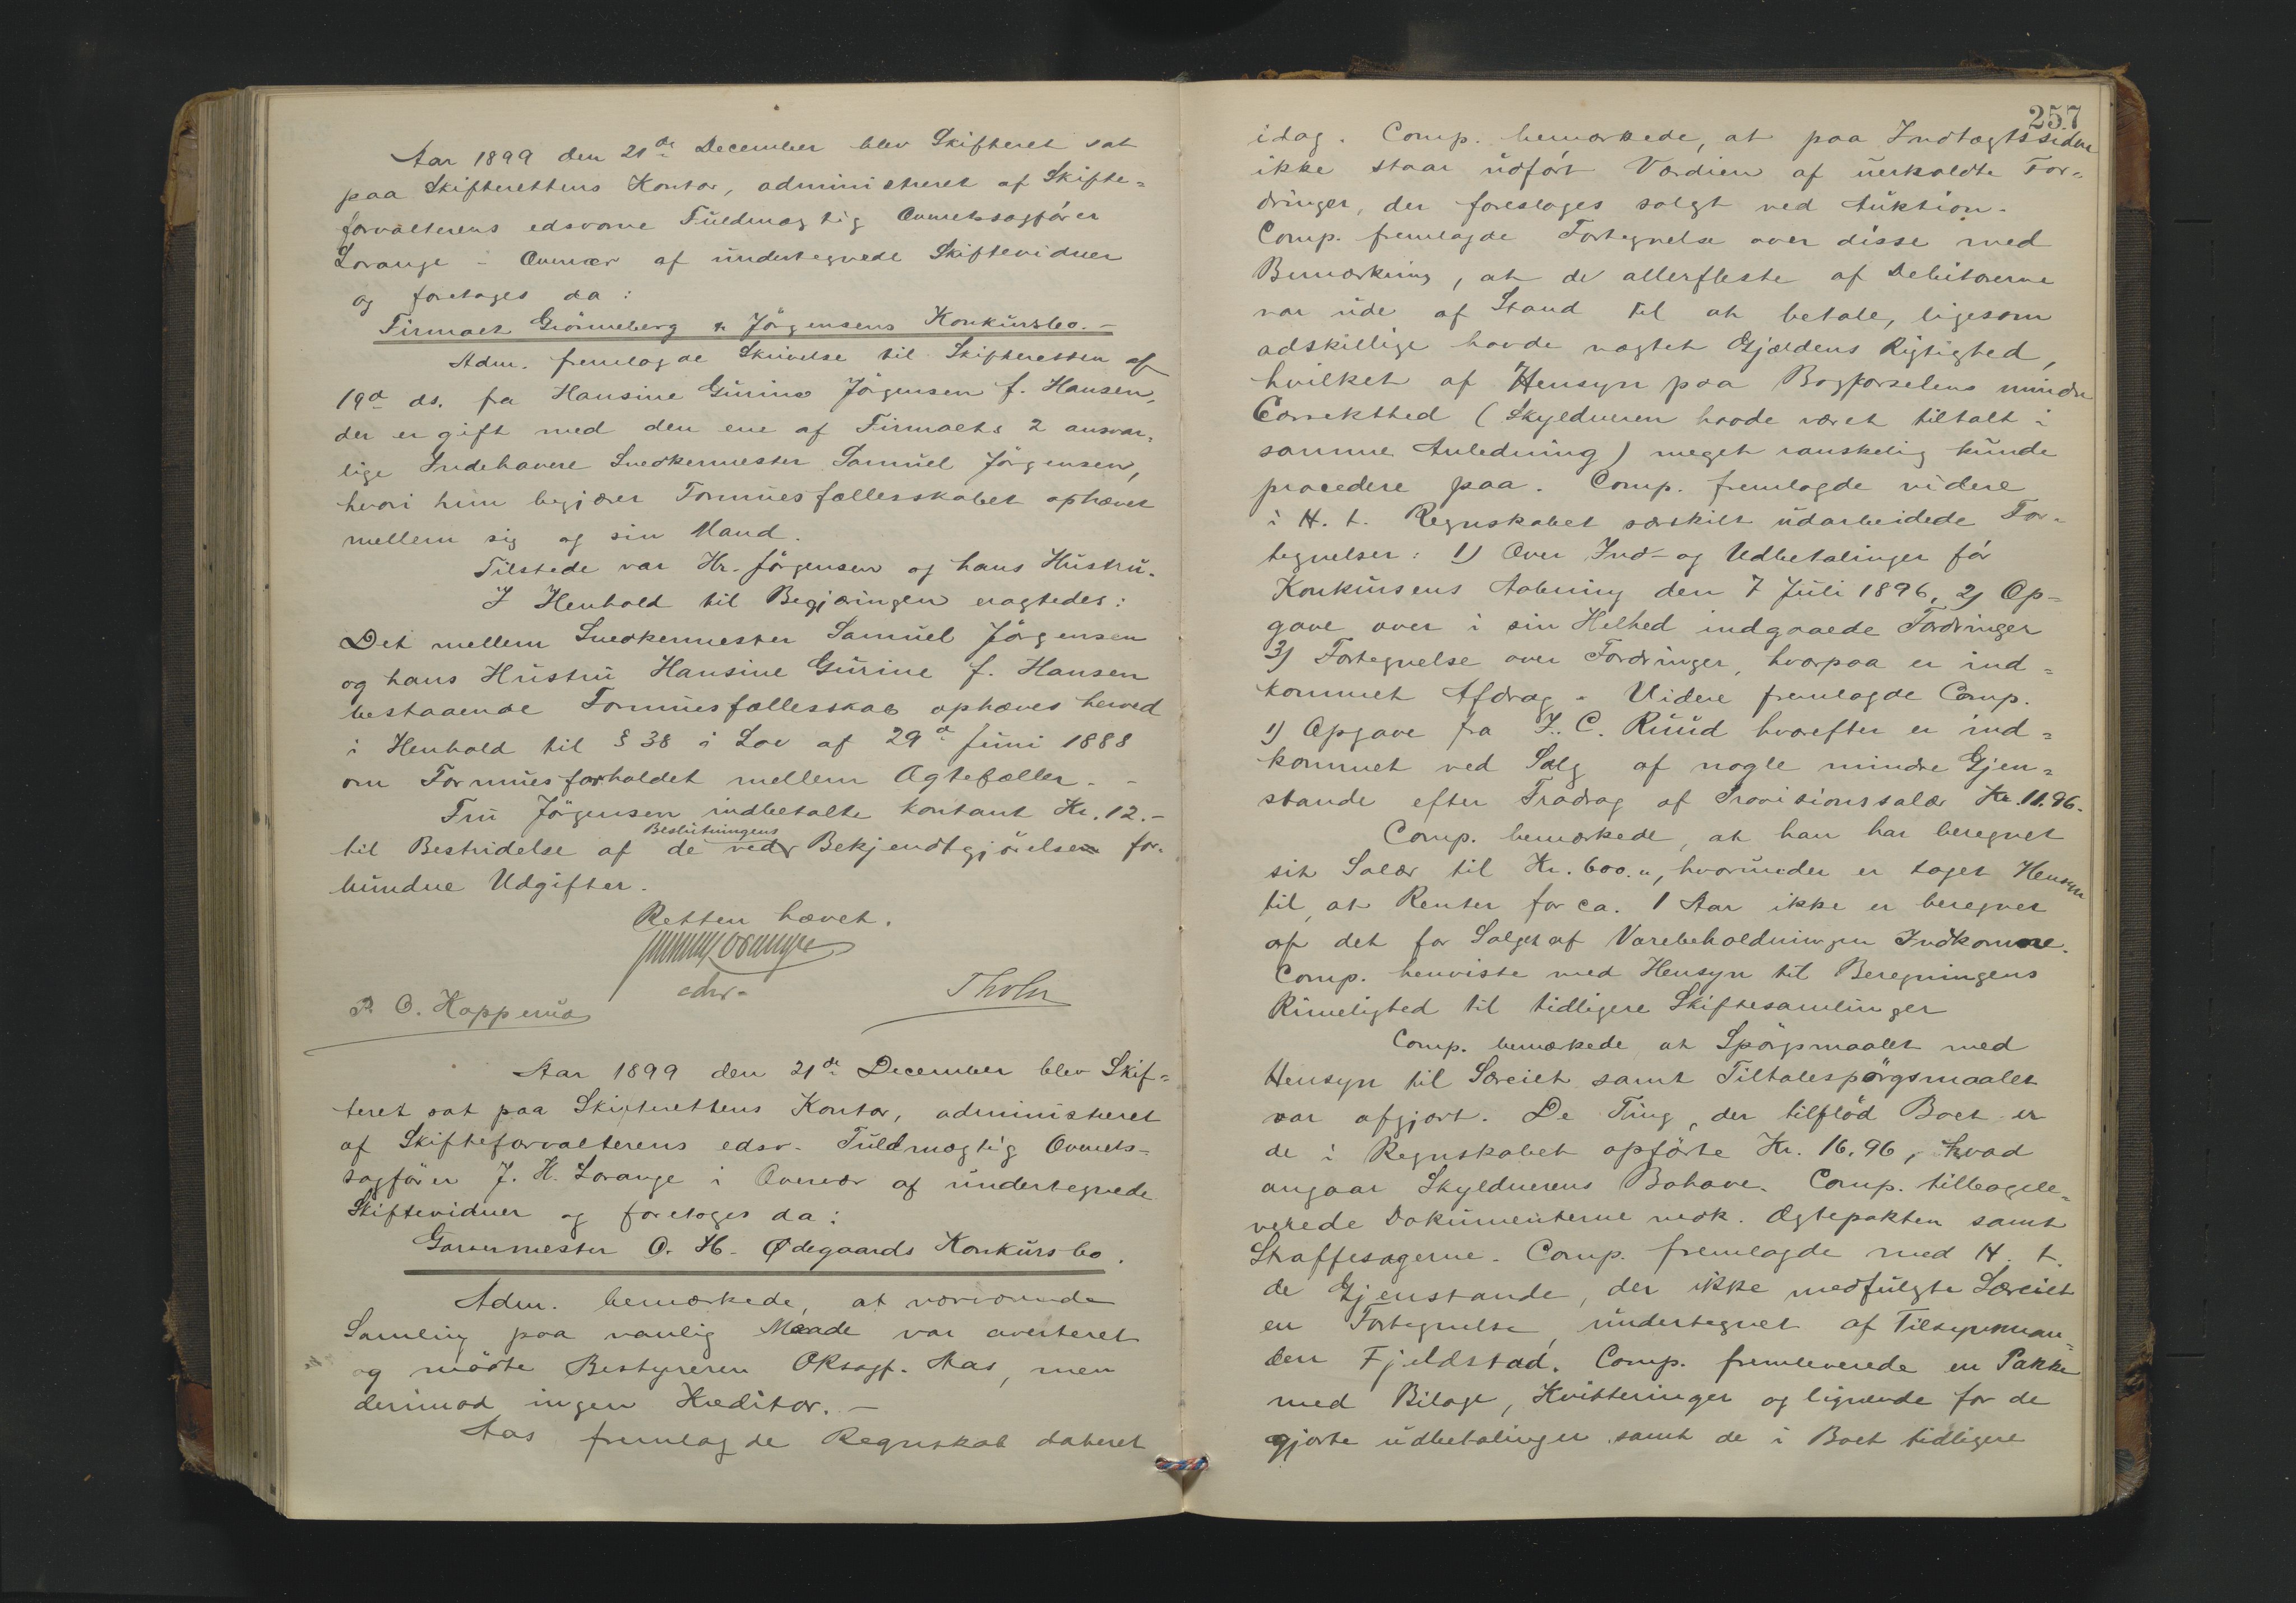 Aar 1899 den 21de December blev Skifteret sat
paa Skifterettens Kontor, administreret af Skifte=
forvalterens edsvorne Fuldmægtig Overretssagfører
Lorange i Overvær af undertegnede Skiftevidner
og foretages da:
Firmaet Grönneberg & Jörgensens Konkursbo.-
Adm. fremlagde Skrivelse til Skifteretten af
19d ds. fra Hansine Gurine Jörgensen f. Hansen,
der er gift med den ene af Firmaets 2 ansvar=
lige Indehavere Snedkermester Samuel Jörgensen,
hvori hun begjærer Formuesfællesskabet ophævet
mellem sig og sin Mand.
Tilstede var Hr. Jörgensen og hans Hustru.
I Henhold til Begjæringen eragtedes:
Det mellem Snedkermester Samuel Jörgensen
og hans Hustru Hansine Gurine f. Hansen
bestaaende Formuesfællesskab ophæves herved
i Henhold til § 38 i Lov af 29d Juni 1888
om Formuesforholdet mellem Ægtefæller. -
Fru Jörgensen indbetalte kontant Kr. 12.-
Beslutningens
til Bestridelse af de ved Bekjendtgjörelse for=
bundne Udgifter.
Retten hævet.
Lorange
edsv.
P. O. Koppenaa
Tholn
Aar 1899 den 21de December blev Skif=
teret sat paa Skifterettens Kontor, administreret
af Skifteforvalterens edsv. Fuldmægtig Overrets=
sagförer J. H. Lorange i Overvær af undertegnede
Skiftevidner og foretoges da:
Garvermester O. H. Ødegaards Konkursbo.
Adm. bemærkede, at nærværende
Samling paa vanlig Maade var averteret
og mödte Bestyreren OKsagf. Aas, men
derimod ingen Kreditor. -
Aas fremlagde Regnskab dateret
257
idag. Comp. bemærkede, at paa Indtægtssiden
ikke staar udfört Værdien af uerholdte For=
dringer, der foreslages solgt ved Auktion.
Comp. fremlagde Fortegnelse over disse med
Bemærkning, at de allerfleste af Debitorerne
var ude af Stand til at betale, ligesom
adskillige havde nægtet Gjældens Rigtighed,
hvilket af Hensyn paa Bogførselens mindre
Correkthed (Skyldneren havde været tiltalt i
samme Anledning) meget vanskelig kunde
procedere paa. Comp. fremlagde videre
i H. t. Regnskabet særskilt udarbeidede For=
tegnelser: 1) Over Ind- og Udbetalinger för
Konkursens Aabning den 7 Juli 1896, 2) Op=
gave over i sin Helhed indgaaede Fordringer
3) Fortegnelse over Fordringer, hvorpaa er ind=
kommet Afdrag. Videre fremlagde Comp.
1) Opgave fra I. C. Ruud hvorefter er ind=
kommet ved Salg af nogle mindre Gjen=
stande efter Fradrag af Provisionssalær Kr. 11.96.
Comp. bemærkede, at han har beregnet
sit Salær til Kr. 600.", hvorunder er taget Hensyn
til, at Renter for ca. 1 Aar ikke er beregnet
af det for Salget af Varebeholdningen Indkomne.
Comp. henviste med Hensyn til Beregningens
Rimelighed til tidligere Skiftesamlinger
Comp. bemærkede, at Spörgsmaalet med
Hensyn til Særeiet samt Tiltalespörgsmaalet
var afgjort. De Ting, der tilflöd Boet er
de i Regnskabet opförte Kr. 16.96, hvad
angaar Skyldnerens Bohave. Comp. tilbagele=
verede Dokumenterne vedk. Ægtepakten samt
Straffesagerne. Comp. fremlagde med H. t.
de Gjenstande, der ikke medfulgte Særeiet
en Fortegnelse, undertegnet af Tilsynsman=
den Fjeldstad. Comp. fremleverede en Pakke
med Bilage, Kvitteringer og lignende for de
gjorte udbetalinger samt de i Boet tidligere